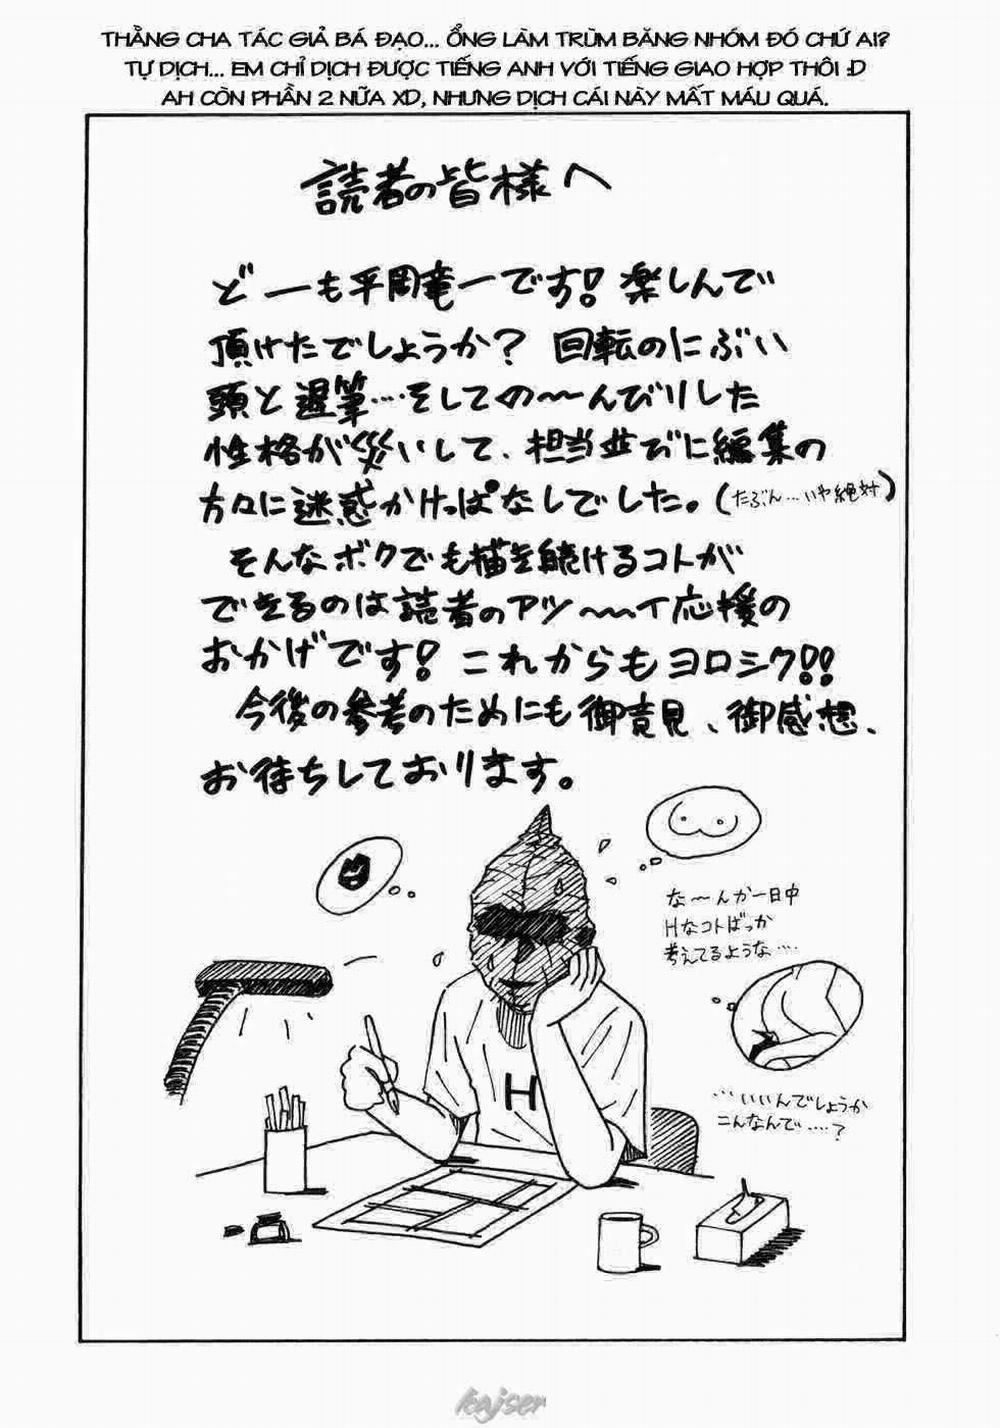 THẰNG CHA TÁC GIẢ BÁ ĐẠO... ỔNG LÀM TRÙM BĂNG NHÓM ĐÓ CHỨ AI?
TỰ DỊCH... EM CHỈ DỊCH ĐƯỢC TIẾNG ANH VỚI TIẾNG GIAO HỢP THÔI :D
AH CÒN PHẦN 2 NỮA XD, NHƯNG DỊCH CÁI NÀY MẤT MÁU QUÁ.
読者の皆様へ
どーも平岡竜一です!楽しんで
頂けたでしょうか?回転のにぶい
頭と遅筆…そしての〜〜んびりした
性格が災いして、担当並びに編集の
方々に迷惑かけっぱなしでした。(たぶん…いや絶対)
そんなボクでも描き続けるコトが
できるのは読者のアツ〜〜イ応援の
おかげです!これからもヨロシク!!
今後の参考のためにも御意見、御感想、
お待ちしております。
な〜んか一日中
Hなコトばっか
考えてるような…
H
…いいんでしょうか
こんなんで…?
kajser